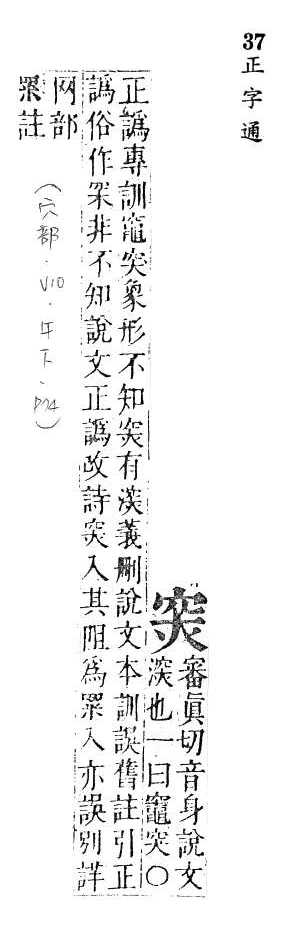 37正字通
突
審眞切音身說文
深也一曰竈突○
正譌專訓竈突象形不知突有深義刪說文本訓誤舊註引正
譌俗作罙非不知說文正譌改詩突入其阻爲罙入亦誤別詳
网部
罙註
(穴部.V10.午下.P74)